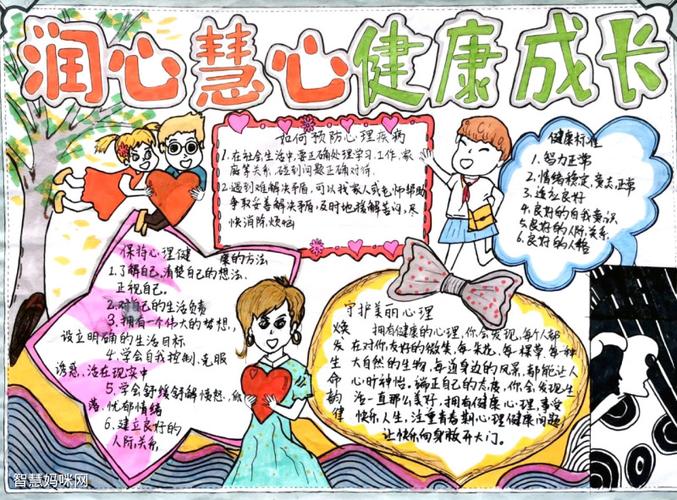 润心慧心健康成长
如何预防心理疾病
1.在社会生活中,要正确处理学习、工作、家
庭等关系,碰到问题正确对待。
2.遇到难解决矛盾,可以找家人或老师帮助
争取妥善解决矛盾,及时地缓解苦闷,尽
快消除烦恼
健康标准
1.智力正常
2.情绪稳定,意志正常
3.适应良好
4.良好的自我意识
5.良好的人际关系
6.良好的人格
保持心理健康的方法
1.了解自己,清楚自己的想法,
正视自己。
2.对自己的生活负责
3.拥有一个伟大的梦想,
设立明确的生活目标
4.学会自我控制,克服
诱惑,活在现实中
5.学会舒缓舒解愤怒、低
落、忧郁情绪
6.建立良好的
人际关系
守护美丽心理
焕发生命韵律
拥有健康的心理,你会发现,每个人都
在对你友好的微笑,每一朵花,每一棵草,每一种
大自然的生物,每道身边的风景,都能让人
心旷神怡,端正自己的态度,你会发现生
活一直那么美好,拥有健康心理,享受
快乐人生,注重青春期心理健康问题
让快乐向身放开大门。
智慧妈咪网